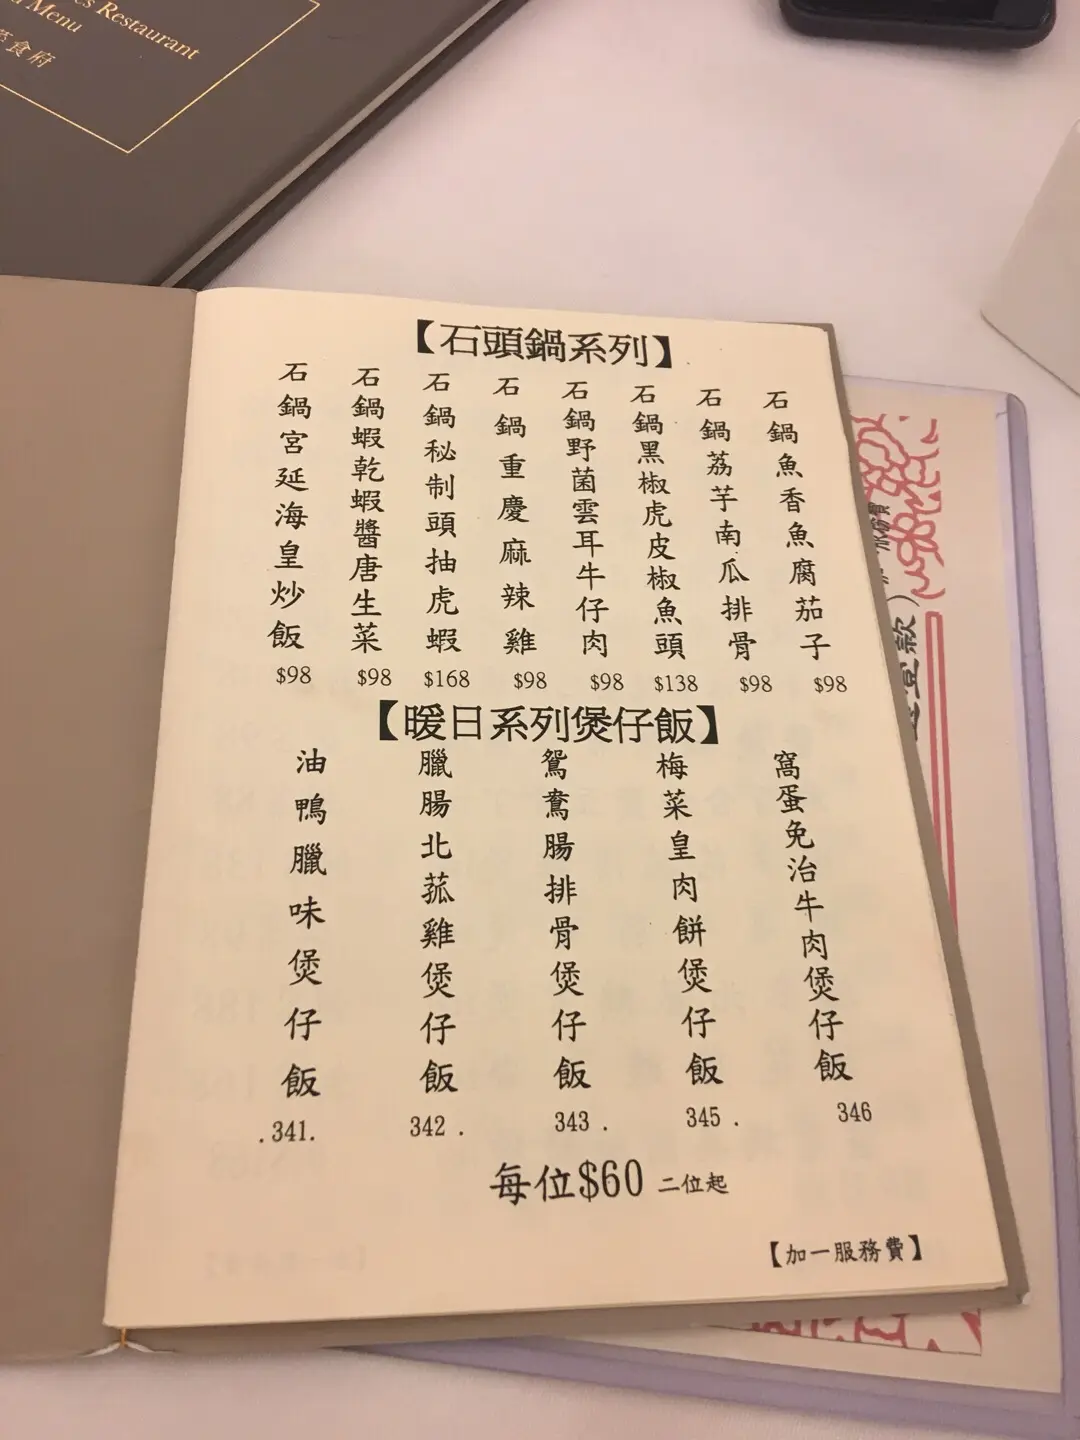 s Restaurant
Menu
食府
【石頭鍋系列】
石鍋魚香魚腐茄子
$98
石鍋荔芋南瓜排骨
$98
石鍋黑椒虎皮椒魚頭
$138
石鍋野菌雲耳牛仔肉
$98
石鍋重慶麻辣雞
$98
石鍋秘制頭抽虎蝦
$168
石鍋蝦乾蝦醬唐生菜
$98
石鍋宮延海皇炒飯
$98
【暖日系列煲仔飯】
窩蛋免治牛肉煲仔飯
346
梅菜皇肉餅煲仔飯
345 .
鴛鴦腸排骨煲仔飯
343 .
臘腸北菰雞煲仔飯
342 .
油鴨臘味煲仔飯
.341.
每位$60 二位起
【加一服務費】